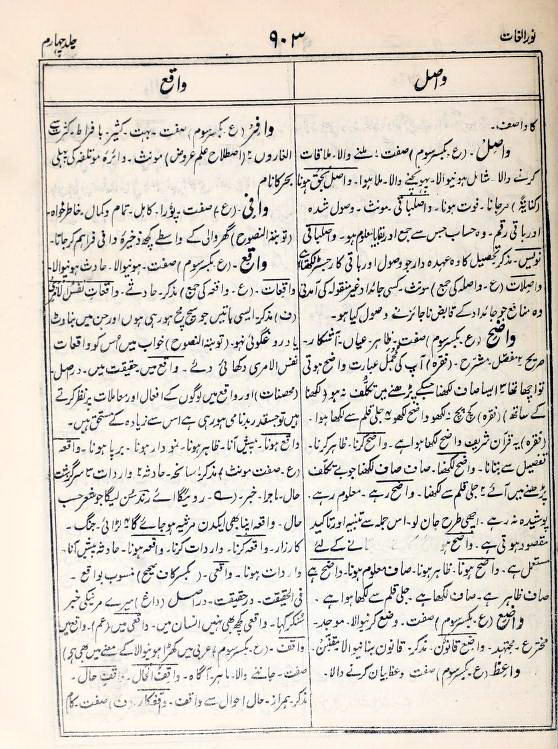 نور اللغات
۹۰۳
جلد چہارم
واصل
واقع
کا واصف۔
واصل۔ (ع۔ بکسر سوم) صفت۔ ملنے والا۔ ملاقات
کرنے والا۔ شامل ہونیوالا۔ پہونچنے والا۔ ملا ہوا۔ واصل بحق ہونا
(کنایۃً) مرجانا۔ فوت ہونا۔ واصلباقی۔ مونث۔ وصول شدہ
اور باقی رقم۔ وہ حساب جس سے جمع اور بقایا معلوم ہو۔ واصلباقی
نویس۔ مذکر۔ تحصیل کا وہ عہدہ دار جو وصول اور باقی کا رجسٹر لکھتا ہے
واصلات (ع۔ واصلہ کی جمع) مونث۔ کسی جائداد غیر منقولہ کی آمدنی
وہ منافع جو جائداد کے قابض ناجائز نے وصول کیا ہو۔
واضح (ع۔ بکسر سوم) صفت۔ ظاہر۔ عیاں۔ آشکار۔
صریح۔ مفصل۔ مشرح۔ (فقرہ) آپ کی مجمل عبارت واضح ہوتی
تو اچھا تھا۔ ایسا صاف لکھنا جسکے پڑھنے میں تکلف نہ ہو (لکھنا
کے ساتھ) (فقرہ) کچ مچ نہ لکھو واضح لکھو۔ جلی قلم سے لکھا ہوا۔
(فقرہ) یہ قرآن شریف واضح لکھا ہوا ہے۔ واضح کرنا۔ ظاہر کرنا۔
تفصیل سے بتانا۔ واضح لکھنا۔ صاف صاف لکھنا جو بے تکلف
پڑھنے میں آئے۔ جلی قلم سے لکھنا۔ واضح رہے۔ معلوم رہے۔
پوشیدہ نہ رہے۔ اچھی طرح جان لو۔ اس جملہ سے تنبیہ اور تاکید
مقصود ہوتی ہے۔ واضح ہو
مستعمل ہے۔ واضح ہونا۔ ظاہر ہونا۔ صاف معلوم ہونا۔ واضح ہے
صاف ظاہر ہے۔ صاف لکھا ہے۔ جلی قلم سے لکھا ہوا ہے۔
واضع (ع۔ بکسر سوم) صفت۔ وضع کرنیوالا۔ موجد۔
مخترع۔ مجتہد۔ واضع قانون۔ مذکر۔ قانون بنانیوالا۔ مقنن۔
واعظ (ع۔ بکسر سوم) صفت۔ وعظ بیان کرنے والا۔
وافر (ع۔ بکسر سوم) صفت۔ بہت۔ کثیر۔ بافراط۔ کثرت سے
(اصطلاح علم عروض) مونث۔ دائرہ موتلفہ کی پہلی
بحر کا نام
وافی (ع) صفت۔ پورا۔ کامل۔ تمام و کمال۔ خاطر خواہ۔
(توبۃ النصوح) گھر والی کے واسطے کچھ ذخیرۂ وافی فراہم کر جاتا۔
واقع۔ (ع۔ بکسر سوم) صفت۔ ہونیوالا۔ حادث ہونیوالا۔
واقعات (ع۔ واقعہ کی جمع) مذکر۔ حادثے۔ واقعات نفس الامری
(ف) مذکر۔ ایسی باتیں جو سچ مچ ہو رہی ہوں اور جن میں بناوٹ
یا دروغ گوئی نہ ہو۔ (توبۃ النصوح) خواب میں اُس کو واقعات
نفس الامری دکھائی دیے۔ واقع میں۔ حقیقت میں۔ دراصل۔
(محصنات) اور واقع میں لوگوں کے افعال اور معاملات پر نظر کرتے
ہیں تو جسقدر بدنامی ہو رہی ہے اس سے زیادہ کے مستحق ہیں۔
واقع ہونا۔ پیش آنا۔ ظاہر ہونا۔ نمودار ہونا۔ برپا ہونا۔ واقعہ
(ع۔ صفت مونث) مذکر۔ سانحہ۔ حادثہ۔ واردات۔ سرگزشت
حال۔ ماجرا۔ خبر۔
حال۔ واقعہ اپنا بھی ایکدن مرثیہ ہو جائے گا۔ لڑائی۔ جنگ۔
کارزار۔ واقعہ کرنا۔ واردات کرنا۔ واقعہ ہونا۔ حادثہ پیش آنا۔
واردات ہونا۔ واقعی۔ (بکسر کاف صحیح) منسوب بواقع۔
فی الحقیقت۔ درحقیقت۔ دراصل (داغ) میرے مرنیکی خبر
سُنکر کہا۔ واقعی کچھ بھی نہیں انسان میں۔ واقعی میں (عم) واقع میں
واقف۔ (ع۔ بکسر سوم) عربی میں کھڑا ہونیوالا کے معنے میں بھی ہے)
صفت۔ جاننے والا۔ ماہر۔ آگاہ۔ واقف الحال۔ واقف حال۔
مذکر۔ ہمراز۔ حال احوال سے واقف۔ واقفکار۔ (ف) صفت۔